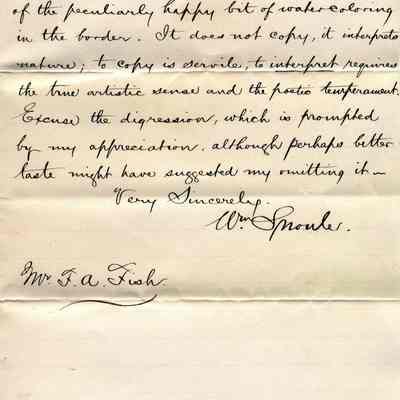 of the peculiarly happy bit of water coloring
in the border. It does not copy, it interprets
nature; to copy is servile, to interpret requires
the true artistic sense and the poetic temperament.
Excuse the digression, which is prompted
by my appreciation, although perhaps better
taste might have suggested my omitting it —
Very Sincerely,
Wm Sproule.
Mr. F. A. Fish.